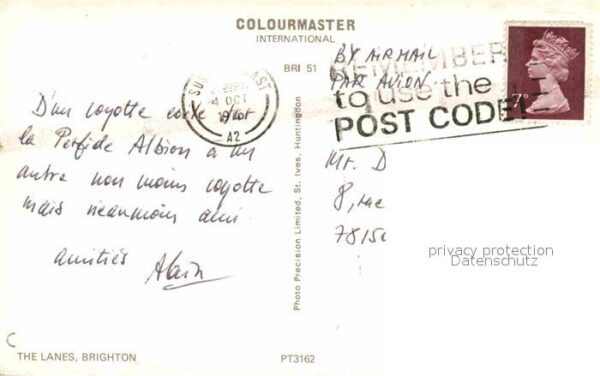 COLOURMASTER
INTERNATIONAL
BRI 51
BY AIR MAIL
PAR AVION
REMEMBER
to use the
POST CODE!
4 OCT
A2
D'un coyotte
la Perfide Albion à un
autre non moins coyotte
mais néanmoins ami
amitiés Alain
Mr. D
8, rue
7815
privacy protection
Datenschutz
Photo Precision Limited, St. Ives, Huntingdon
C
THE LANES, BRIGHTON
PT3162